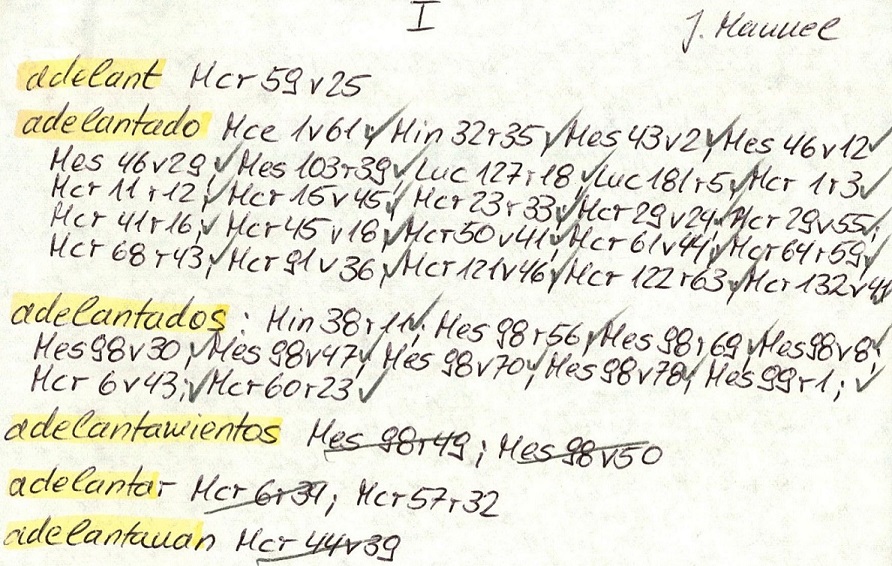 I
J. Manuel
adelant Mcr 59v25
adelantado Mce 1v61; Min 32r35; Mes 43v2; Mes 46v12
Mes 46v29; Mes 103r39; Luc 127r18; Luc 181r5; Mcr 1r3
Mcr 11r12; Mcr 15v45; Mcr 23r33; Mcr 29v24; Mcr 29v55;
Mcr 41r16; Mcr 45v18; Mcr 50v41; Mcr 61v44; Mcr 64r59;
Mcr 68r43; Mcr 91v36; Mcr 121v46; Mcr 122r63; Mcr 132v41
adelantados: Min 38r11; Mes 98r56; Mes 98r69; Mes 98v8;
Mes 98v30; Mes 98v47; Mes 98v70; Mes 98v78; Mes 99r1;
Mcr 6v43; Mcr 60r23
adelantamientos Mes 98r49; Mes 98v50
adelantar Mcr 6r31; Mcr 57r32
adelantauan Mcr 44r39